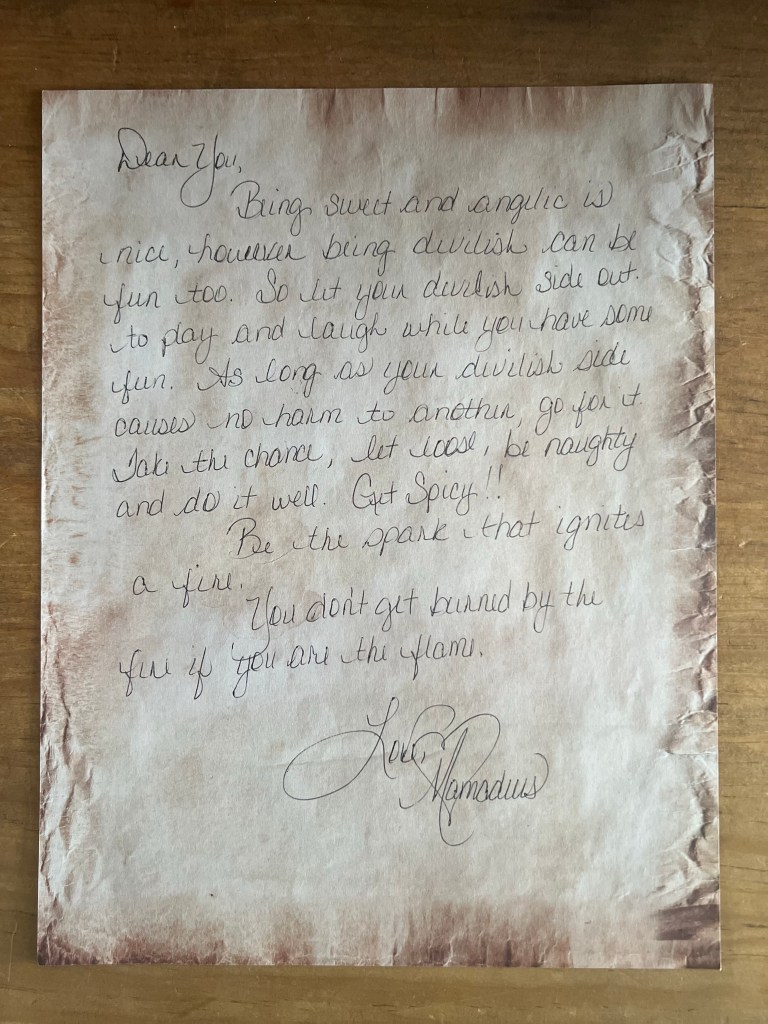 Dear You,
Being sweet and angelic is
nice, however being devilish can be
fun too. So let your devilish side out
to play and laugh while you have some
fun. As long as your devilish side
causes no harm to another, go for it.
Take the chance, let loose, be naughty
and do it well. Get Spicy!!
Be the spark that ignites
a fire.
You don't get burned by the
fire if you are the flame.
Love,